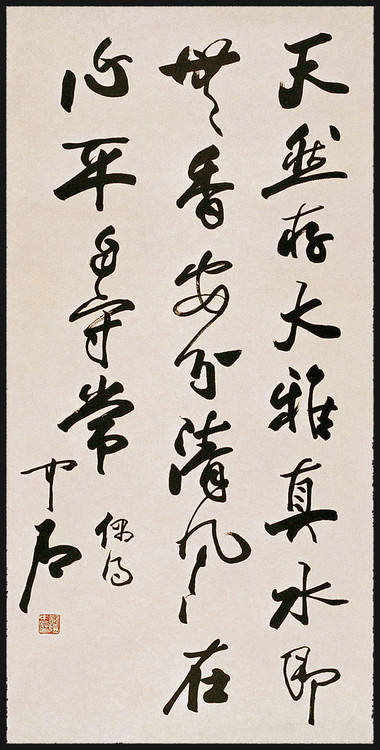 天然存大雅真水即
無香安分清风在
心平自守常
偶得
中石